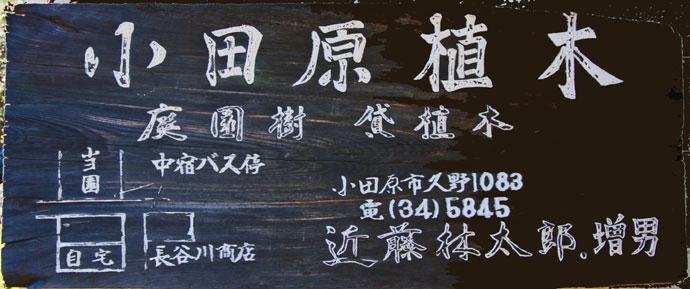 小田原植木
庭園樹 貸植木
当園
中宿バス停
自宅
長谷川商店
小田原市久野1083
電(34)5845
近藤林太郎.増男